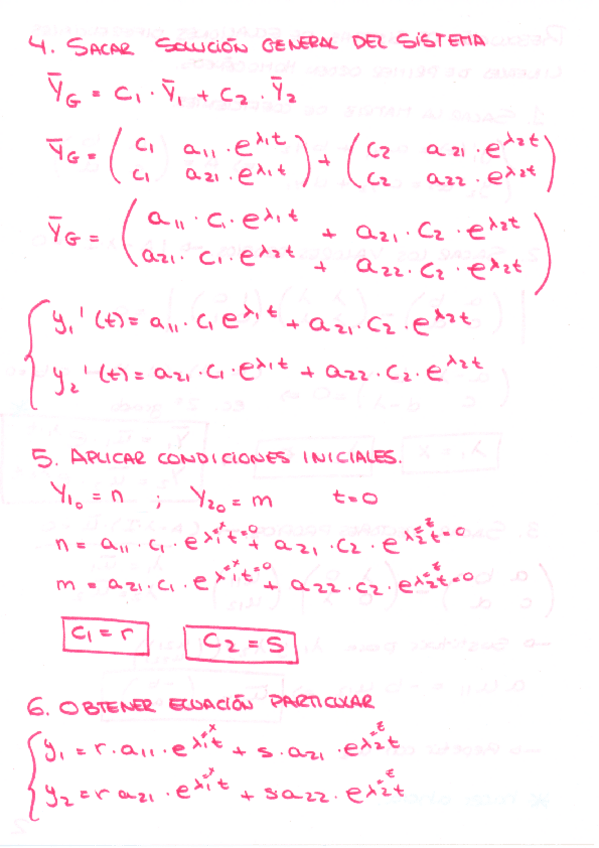 4. SACAR SOLUCIÓN GENERAL DEL SISTEMA
ȲG = C1 · Ȳ1 + C2 · Ȳ2
ȲG = ( C1 a11 · e^λ1t ) + ( C2 a21 · e^λ2t )
( C1 a21 · e^λ1t ) ( C2 a22 · e^λ2t )
ȲG = ( a11 · C1 · e^λ1t + a21 · C2 · e^λ2t )
( a21 · C1 · e^λ2t + a22 · C2 · e^λ2t )
{ y1'(t) = a11 · C1 e^λ1t + a21 · C2 · e^λ2t
y2'(t) = a21 · C1 · e^λ1t + a22 · C2 · e^λ2t
5. APLICAR CONDICIONES INICIALES.
Y1₀ = n ; Y2₀ = m t=0
n = a11 · C1 · e^λ1=x t=0 + a21 · C2 · e^λ2=z t=0
m = a21 · C1 · e^λ1=x t=0 + a22 · C2 · e^λ2=z t=0
C1 = r C2 = S
6. OBTENER ECUACIÓN PARTICULAR
{ y1 = r · a11 · e^λ1=x t + s · a21 · e^λ2=z t
y2 = r a21 · e^λ1=x t + s·a22 · e^λ2=z t